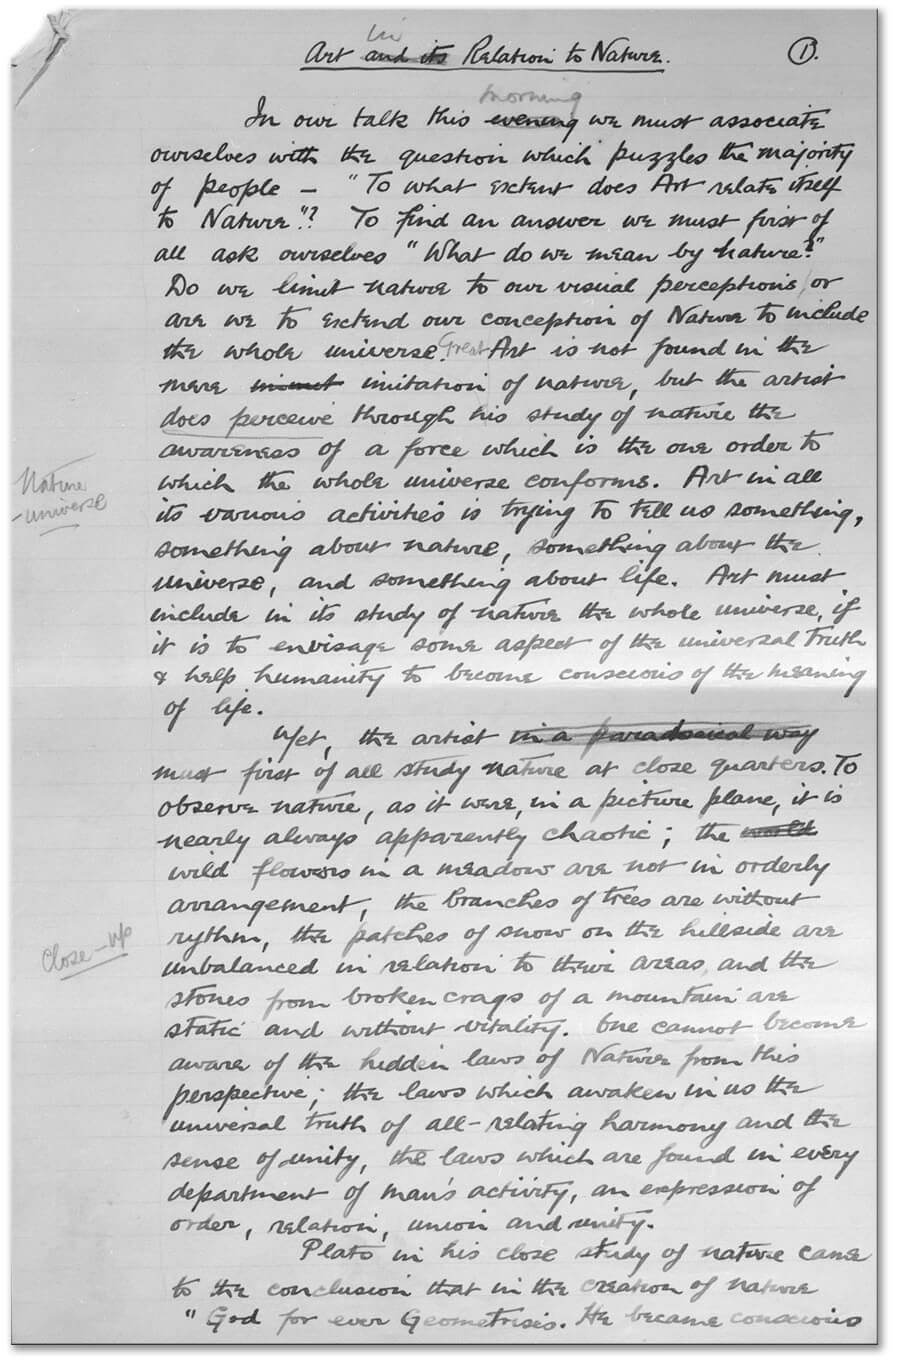 in
Art and its Relation to Nature. 1).
morning
In our talk this evening we must associate
ourselves with the question which puzzles the majority
of people — "To what extent does Art relate itself
to Nature"? To find an answer we must first of
all ask ourselves "What do we mean by Nature?"
Do we limit nature to our visual perceptions, or
are we to extend our conception of Nature to include
the whole universe. Great Art is not found in the
mere imitation of nature, but the artist
does perceive through his study of nature the
awareness of a force which is the one order to
which the whole universe conforms. Art in all
its various activities is trying to tell us something,
something about nature, something about the
universe, and something about life. Art must
include in its study of nature the whole universe, if
it is to envisage some aspect of the universal truth
& help humanity to become conscious of the meaning
of life.
Nature
-universe
Yet, the artist in a paradoxical way
must first of all study nature at close quarters. To
observe nature, as it were, in a picture plane, it is
nearly always apparently chaotic; the world
wild flowers in a meadow are not in orderly
arrangement, the branches of trees are without
rythm, the patches of snow on the hillside are
unbalanced in relation to their areas, and the
stones from broken crags of a mountain are
static and without vitality. One cannot become
aware of the hidden laws of Nature from this
perspective; the laws which awaken in us the
universal truth of all-relating harmony and the
sense of unity, the laws which are found in every
department of man's activity, an expression of
order, relation, union and unity.
Close-up
Plato in his close study of nature came
to the conclusion that in the creation of nature
"God for ever Geometrises. He became conscious